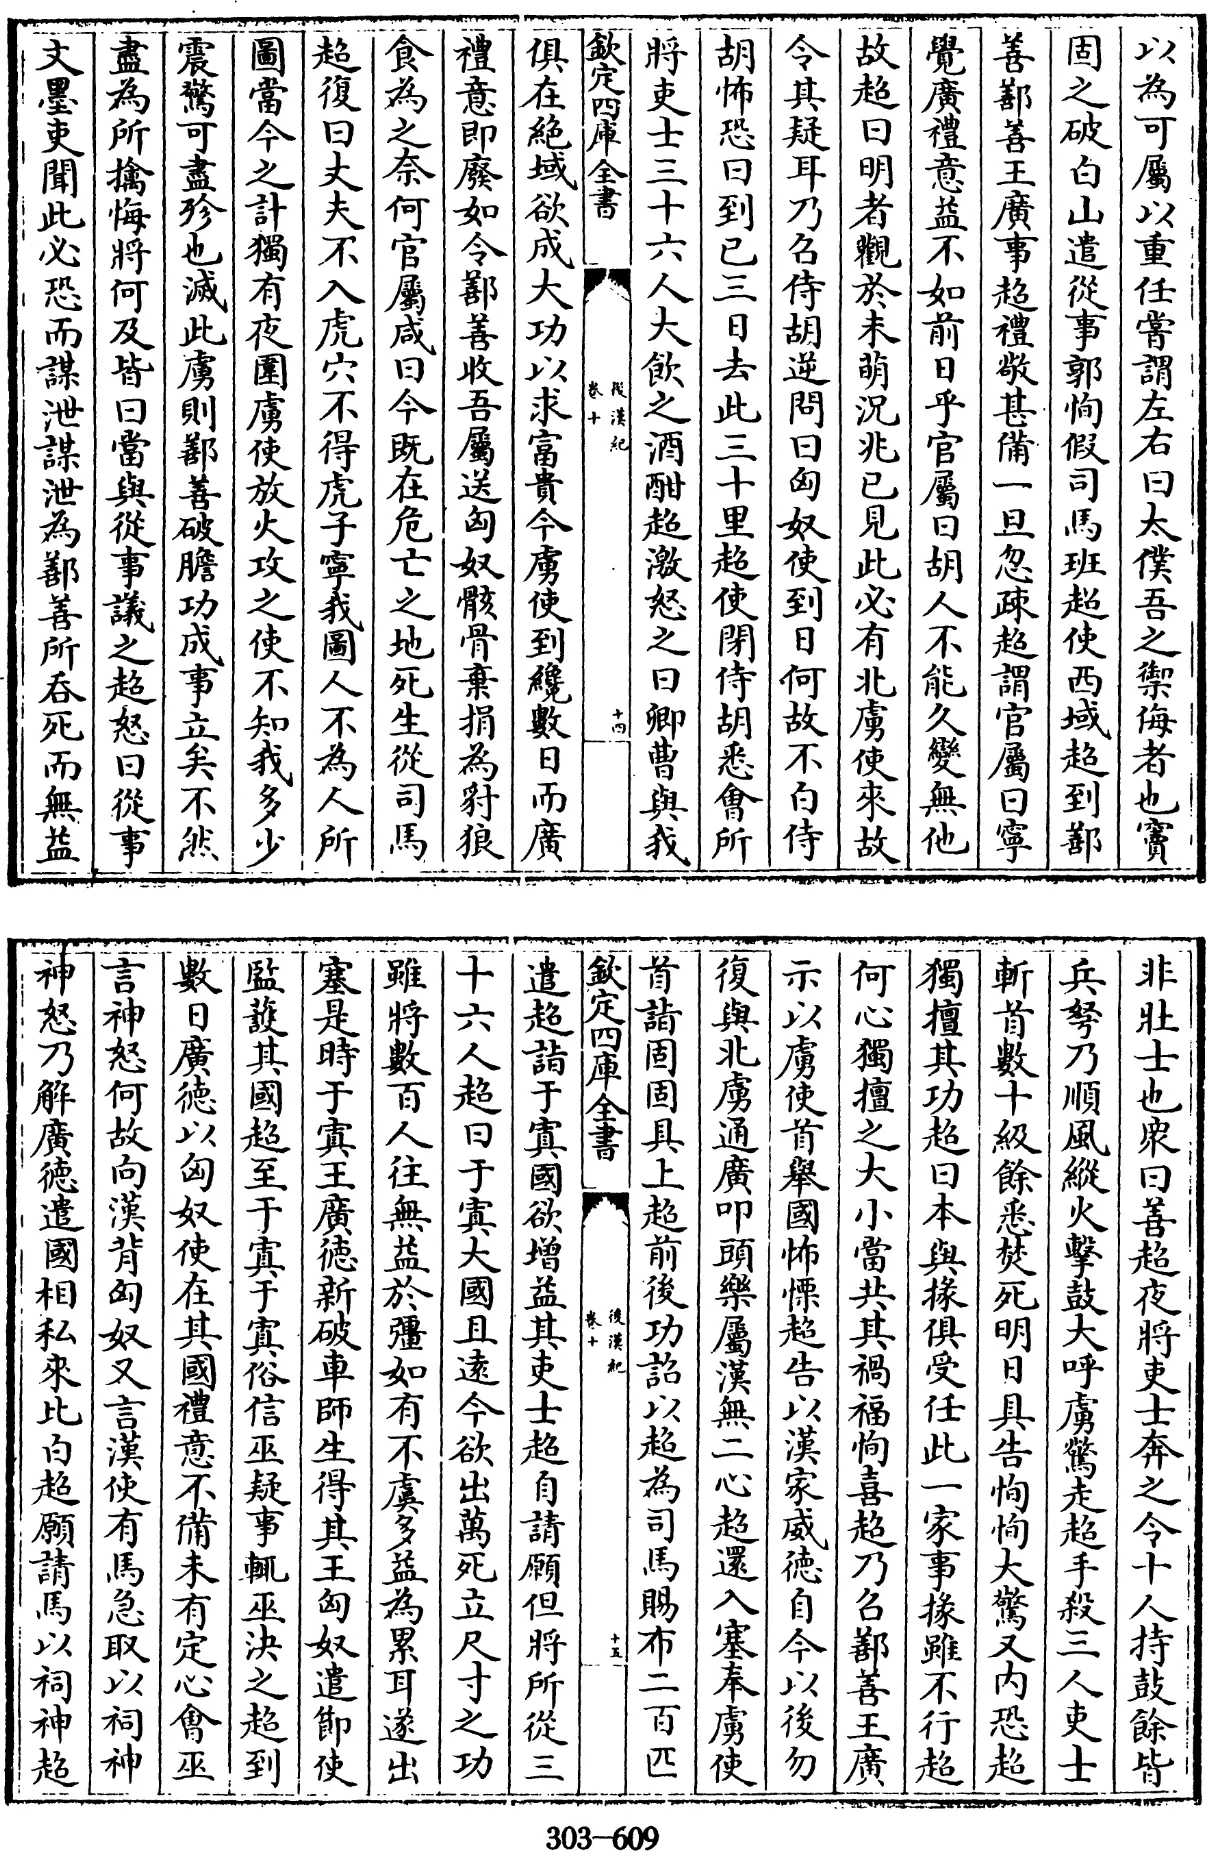 以為可屬以重任嘗謂左右曰太僕吾之禦侮者也竇
固之破白山遣從事郭恂假司馬班超使西域超到鄯
善鄯善王廣事超禮敬甚備一旦忽疎超謂官屬曰寧
覺廣禮意益不如前日乎官屬曰胡人不能久變無他
故超曰明者觀於未萌況兆已見此必有北虜使來故
令其疑耳乃召侍胡逆問曰匈奴使到日何故不白侍
胡怖恐曰到已三日去此三十里超使閉侍胡悉會所
將吏士三十六人大飲之酒酣超激怒之曰卿曹與我
欽定四庫全書
後漢紀
卷十
十四
俱在絶域欲成大功以求富貴今虜使到纔數日而廣
禮意即廢如令鄯善收吾屬送匈奴骸骨棄捐為豺狼
食為之奈何官屬咸曰今既在危亡之地死生從司馬
超復曰丈夫不入虎穴不得虎子寧我圖人不為人所
圖當今之計獨有夜圍虜使放火攻之使不知我多少
震驚可盡殄也滅此虜則鄯善破膽功成事立矣不然
盡為所擒悔將何及皆曰當與從事議之超怒曰從事
文墨吏聞此必恐而謀泄謀泄為鄯善所吞死而無益
非壯士也衆曰善超夜將吏士奔之令十人持鼓餘皆
兵弩乃順風縱火擊鼓大呼虜驚走超手殺三人吏士
斬首數十級餘悉焚死明日具告恂恂大驚又内恐超
獨擅其功超曰本與掾俱受任此一家事掾雖不行超
何心獨擅之大小當共其禍福恂喜超乃召鄯善王廣
示以虜使首舉國怖慄超告以漢家威德自今以後勿
復與北虜通廣叩頭樂屬漢無二心超還入塞奉虜使
首詣固固具上超前後功詔以超為司馬賜布二百匹
欽定四庫全書
後漢紀
卷十
十五
遣超詣于窴國欲增益其吏士超自請願但將所從三
十六人超曰于窴大國且遠今欲出萬死立尺寸之功
雖將數百人往無益於彊如有不虞多益為累耳遂出
塞是時于窴王廣德新破車師生得其王匈奴遣節使
監護其國超至于窴于窴俗信巫疑事輒巫決之超到
數日廣德以匈奴使在其國禮意不備未有定心會巫
言神怒何故向漢背匈奴又言漢使有馬急取以祠神
神怒乃解廣德遣國相私來比白超願請馬以祠神超
303—609